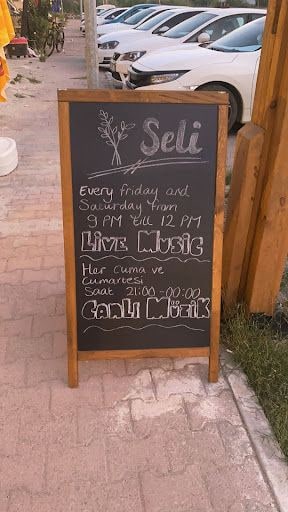 Seli
Every friday and
Saturday from
9 PM till 12 PM
LIVE MUSIC
Her cuma ve
cumartesi
Saat 21:00-00:00
CANLI MÜZİK